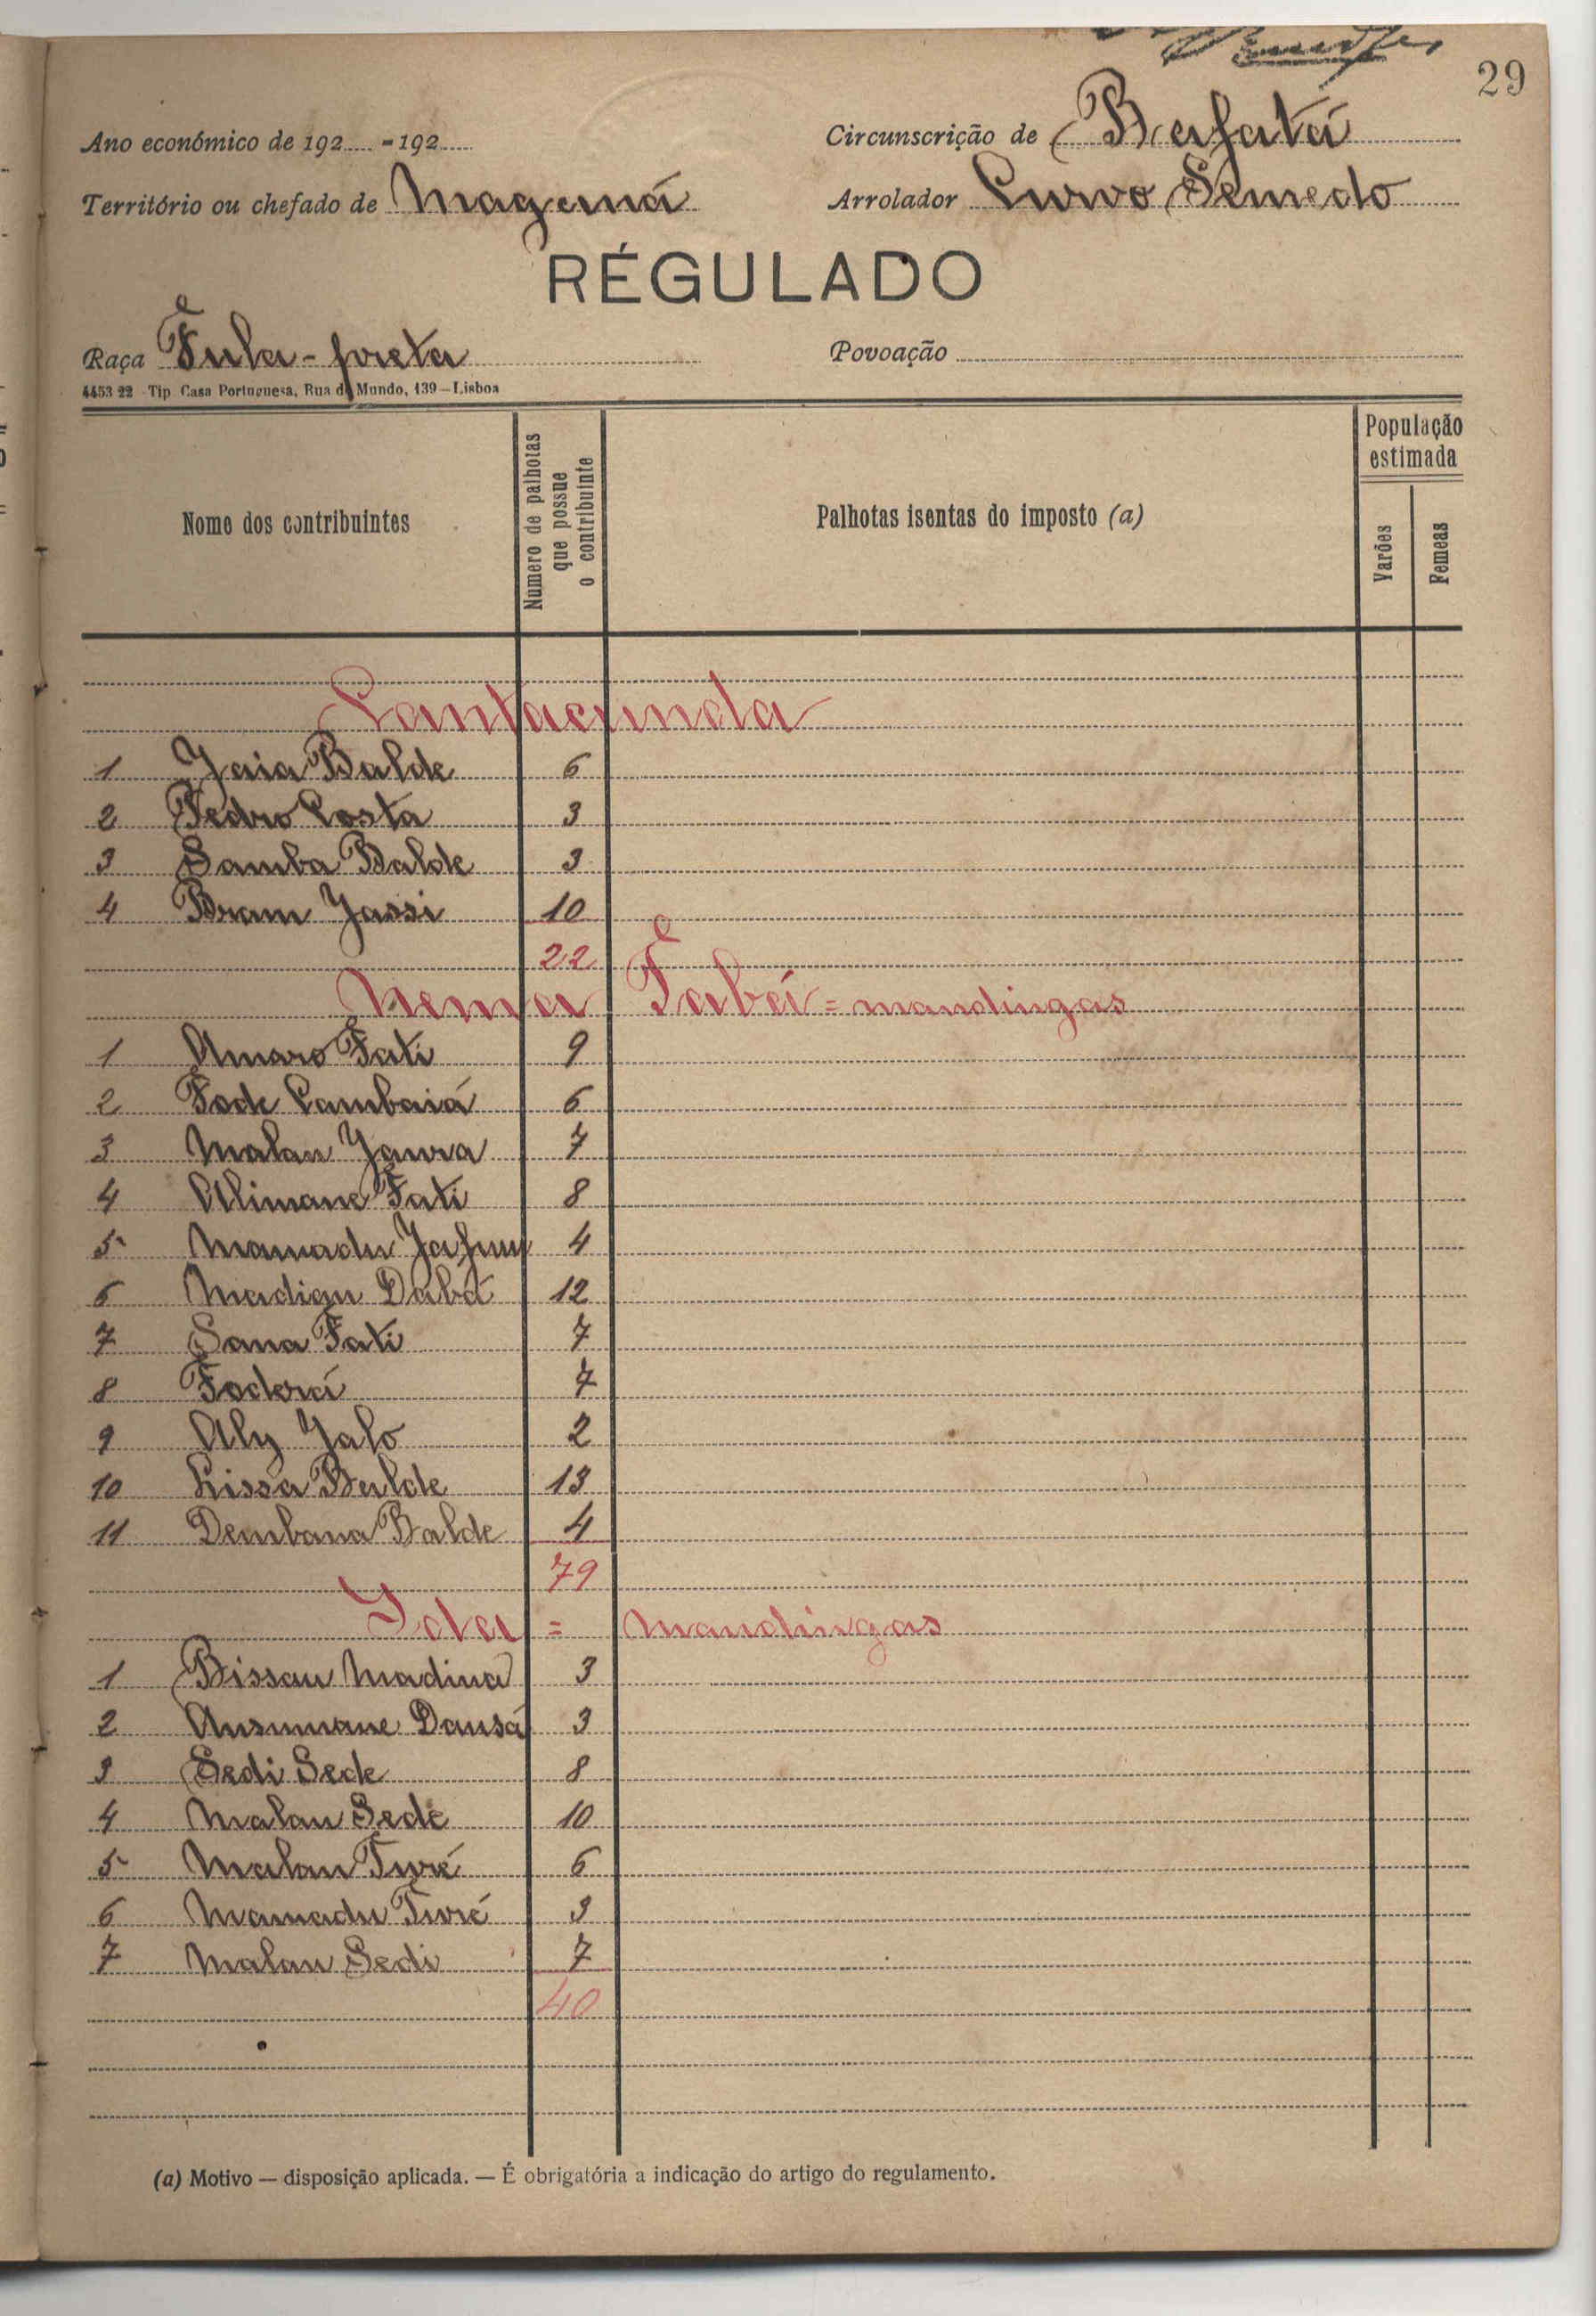 29
Ano económico de 192..... - 192.....
Circunscrição de Bafatá
Território ou chefado de Magemá
Arrolador Curvo Semedo
RÉGULADO
Raça Fula-preta
Povoação
4453 22 Tip. Casa Portuguesa, Rua do Mundo, 139—Lisboa
Nome dos contribuintes
Numero de palhotas que possue o contribuinte
Palhotas isentas do imposto (a)
População estimada
Varões
Femeas
Cantacunda
1 Jaia Balde 6
2 Pedro Costa 3
3 Samba Balde 3
4 Bram Jassi 10
22
Nema Tabá = mandingas
1 Amaro Fati 9
2 Fode Cambaiá 6
3 Malan Jaura 7
4 Alimane Fati 8
5 Mamadu Jafunu 4
6 Madiqu Dabá 12
7 Sana Fati 7
8 Foderá 7
9 Aly Jalo 2
10 Lissa Balde 13
11 Dembana Balde 4
79
= mandingas
1 Bissau Madina 3
2 Ansumane Dansá 3
3 Sedi Sede 8
4 Malan Sede 10
5 Malan Turé 6
6 Mamadu Turé 3
7 Malan Sedi 7
40
(a) Motivo — disposição aplicada. — É obrigatória a indicação do artigo do regulamento.